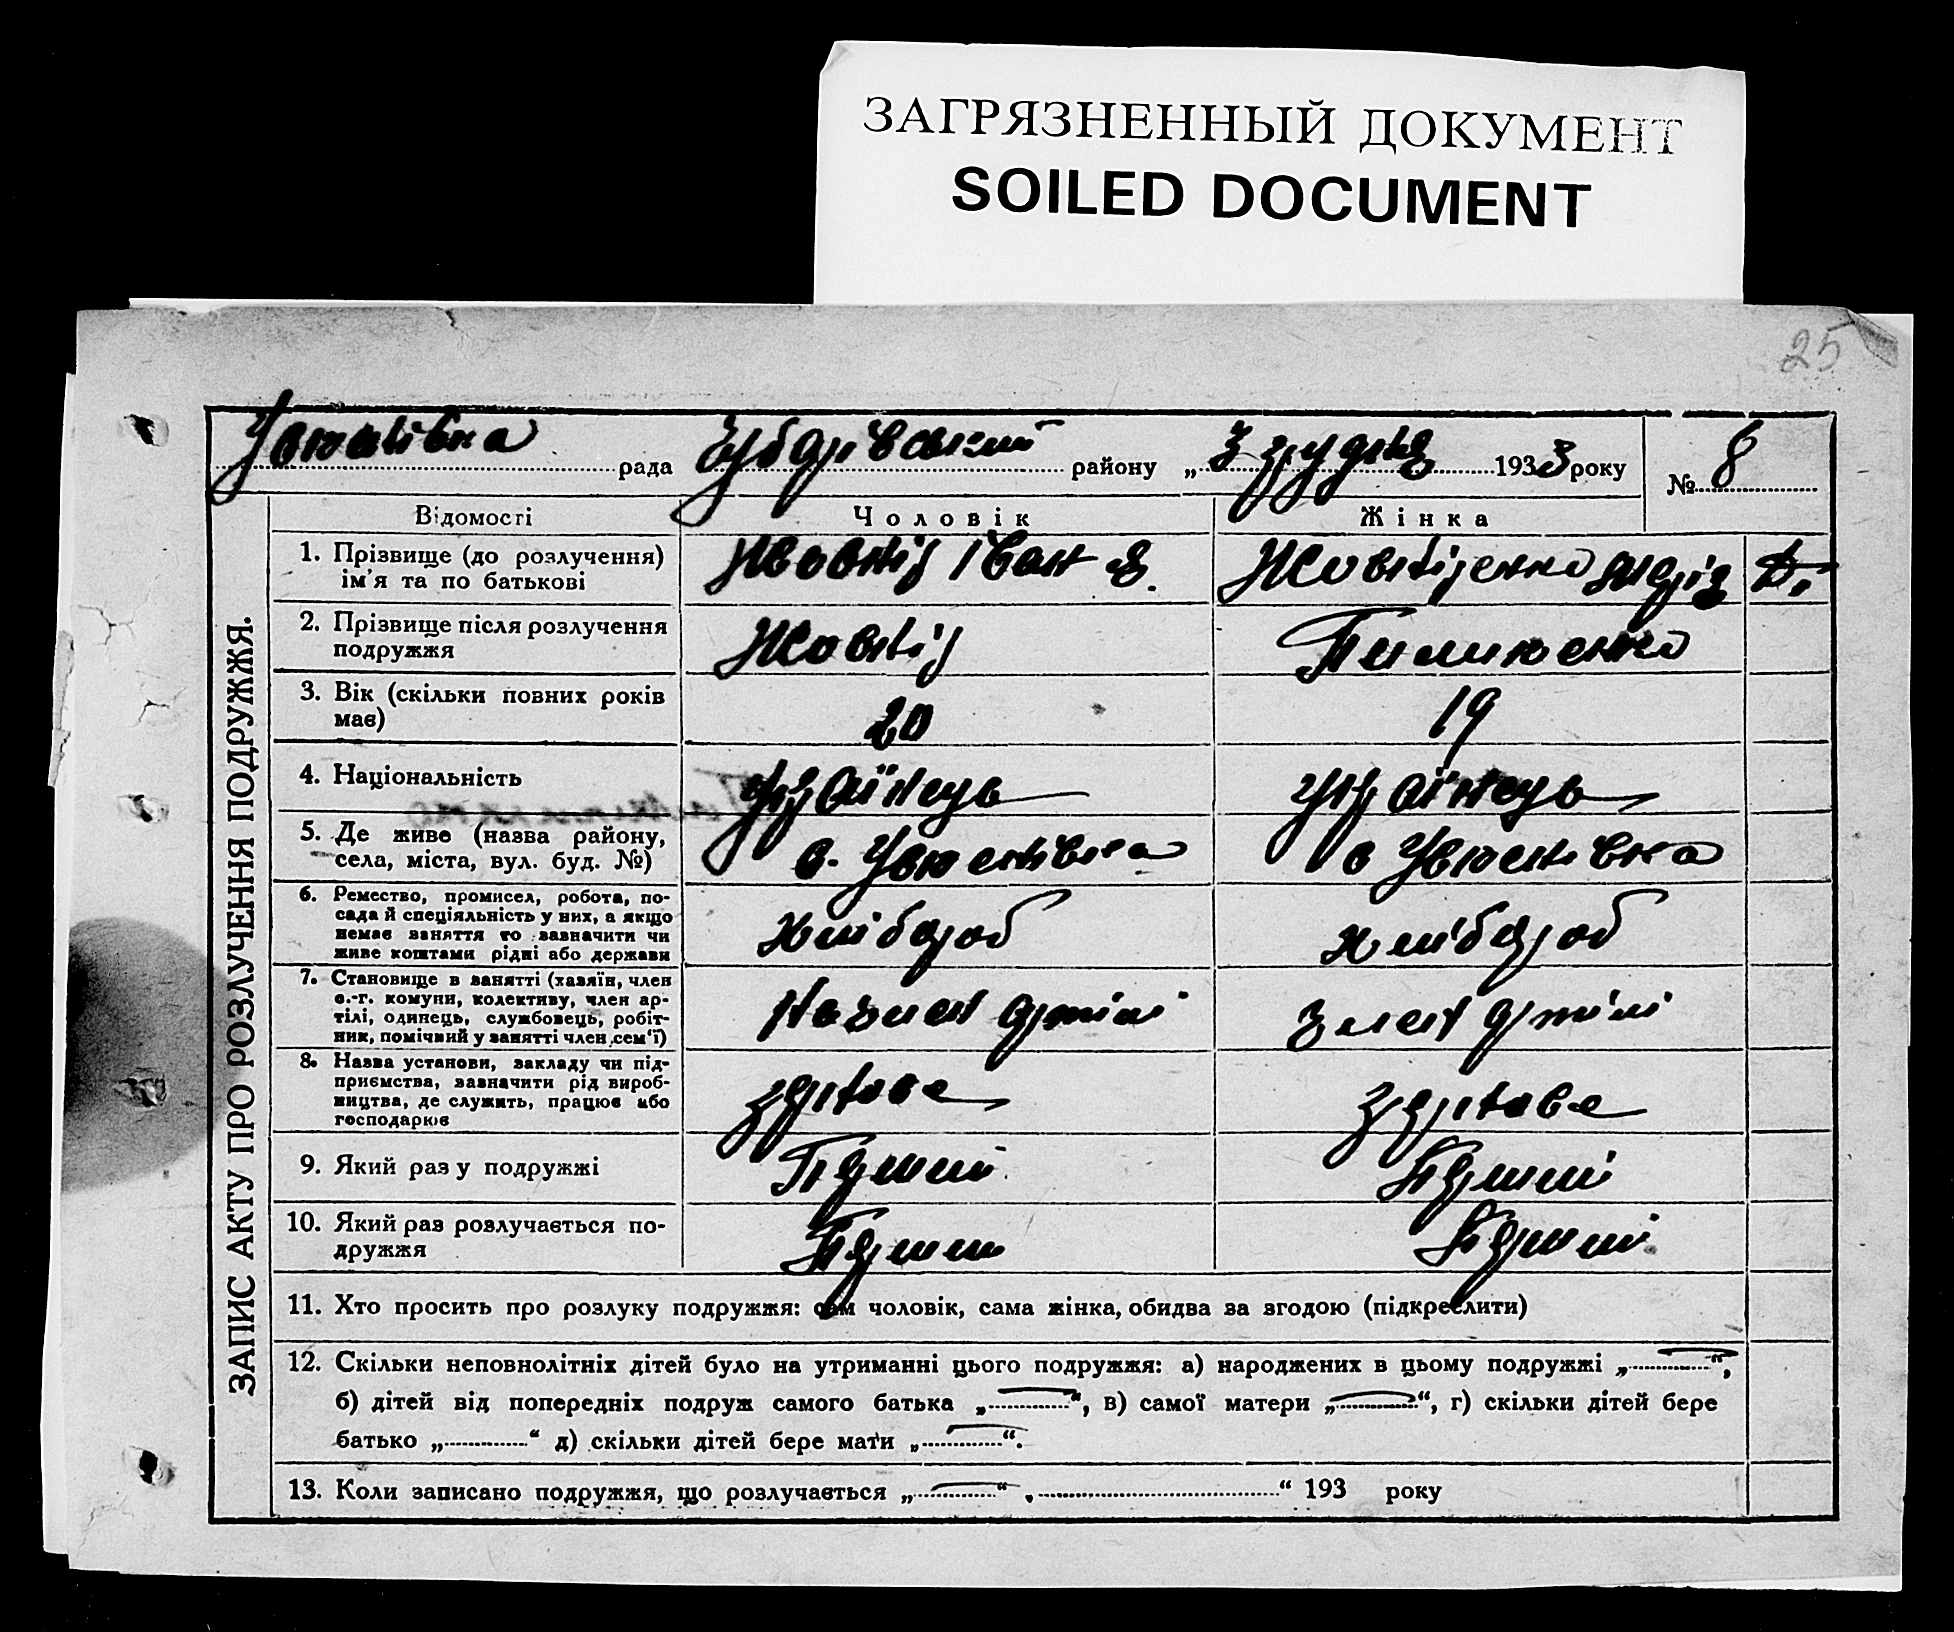 ЗАГРЯЗНЕННЫЙ ДОКУМЕНТ
SOILED DOCUMENT
25
рада району „ 3 грудня 1933 року № 8
ЗАПИС АКТУ ПРО РОЗЛУЧЕННЯ ПОДРУЖЖЯ.
Відомості Чоловік Жінка
1. Прізвище (до розлучення) Іван
ім'я та по батькові
2. Прізвище після розлучення
подружжя
3. Вік (скільки повних років 20 19
має)
4. Національність Українець Українець
5. Де живе (назва району,
села, міста, вул. буд. №)
6. Ремество, промисел, робота, по-
сада й спеціяльність у них, а якщо хлібороб хлібороб
немає заняття то зазначити чи
живе коштами рідні або держави
7. Становище в занятті (хазяїн, член
с.-г. комуни, колективу, член ар- артілі член артілі
тілі, одинець, службовець, робіт-
ник, помічний у занятті член сем'ї)
8. Назва установи, закладу чи під-
приємства, зазначити рід вироб-
ництва, де служить, працює або
господарює
9. Який раз у подружжі Перший Перший
10. Який раз розлучається по- Перший Перший
дружжя
11. Хто просить про розлуку подружжя: сам чоловік, сама жінка, обидва за згодою (підкреслити)
12. Скільки неповнолітніх дітей було на утриманні цього подружжя: а) народжених в цьому подружжі „—“,
б) дітей від попередніх подруж самого батька „—“, в) самої матери „—“, г) скільки дітей бере
батько „............“ д) скільки дітей бере мати „—“.
13. Коли записано подружжя, що розлучається „—“ ............“ 193 року